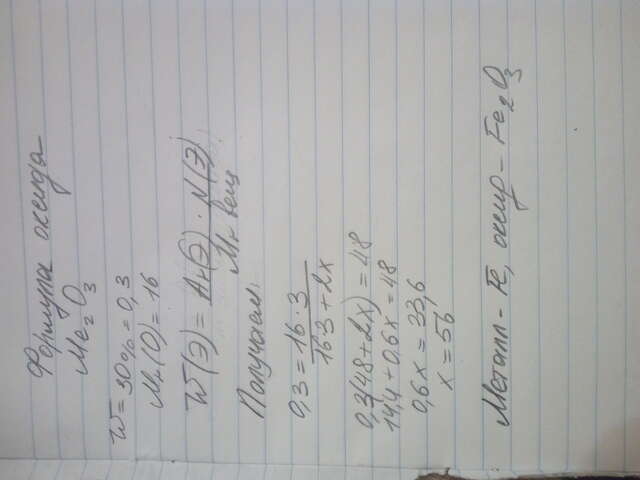 Формула оксида
Me2O3
W = 30% = 0,3
Mr(O) = 16
W(Э) = Ar(Э) · N(Э) / Mr вещ
Получаем:
0,3 = 16·3 / 16·3 + 2x
0,3(48 + 2x) = 48
14,4 + 0,6x = 48
0,6x = 33,6
x = 56
Металл - Fe, оксид - Fe2O3